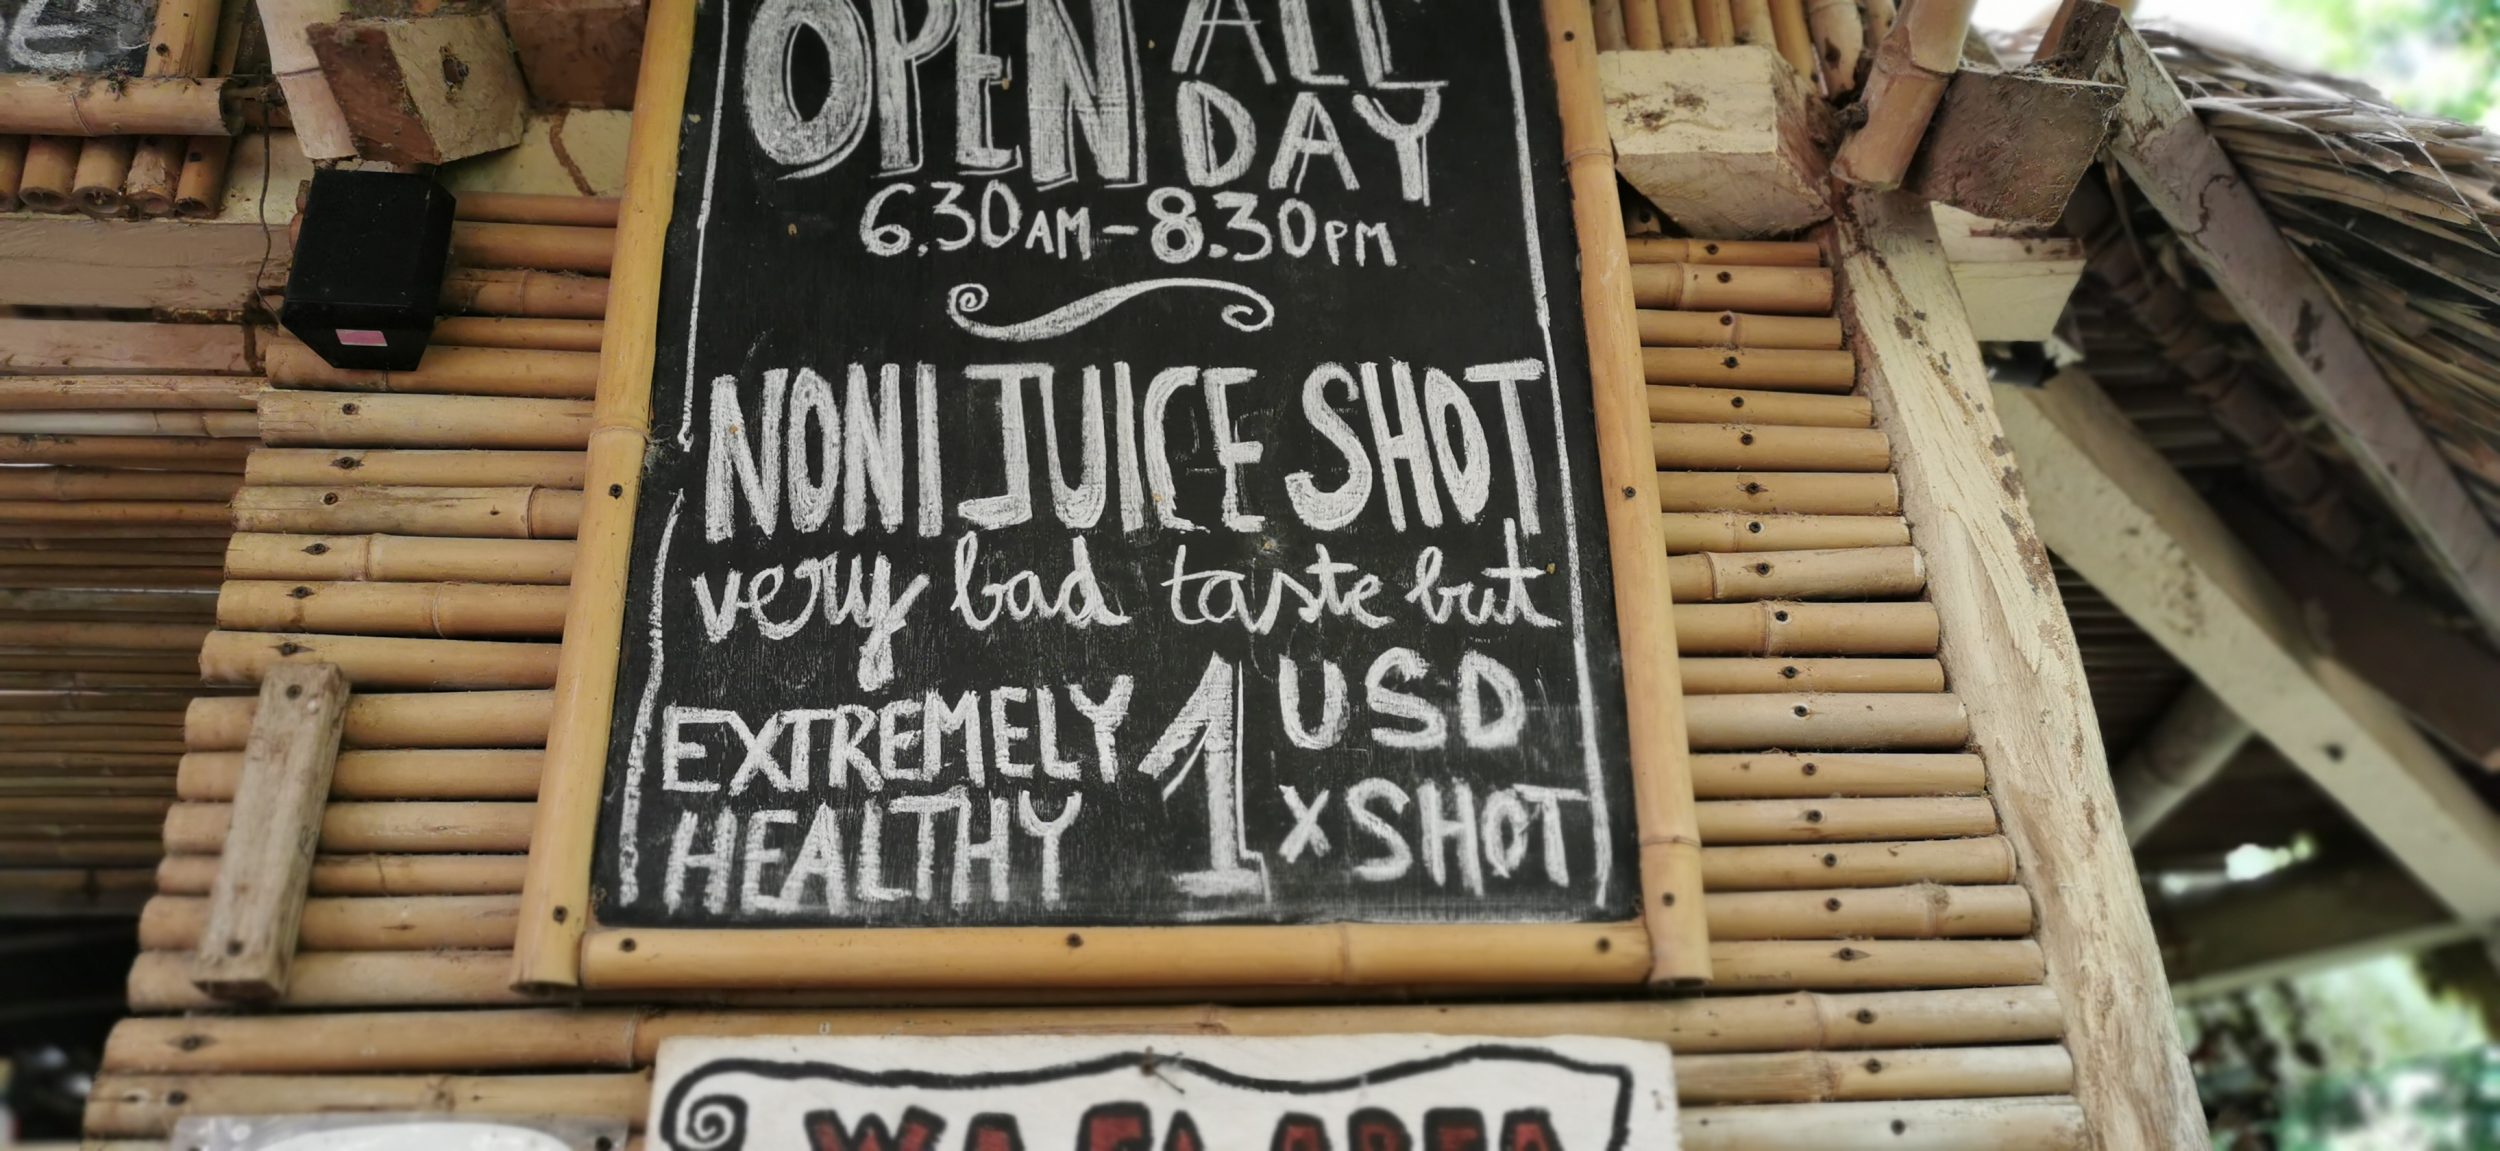 OPEN ALL DAY
6.30AM-8.30PM
NONI JUICE SHOT
very bad taste but
EXTREMELY HEALTHY
1 USD
x SHOT